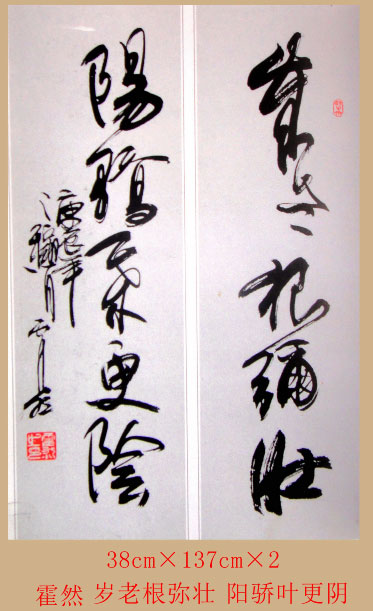 歲老根彌壯
陽驕葉更陰
庚辰年
38cm×137cm×2
霍然 岁老根弥壮 阳骄叶更阴